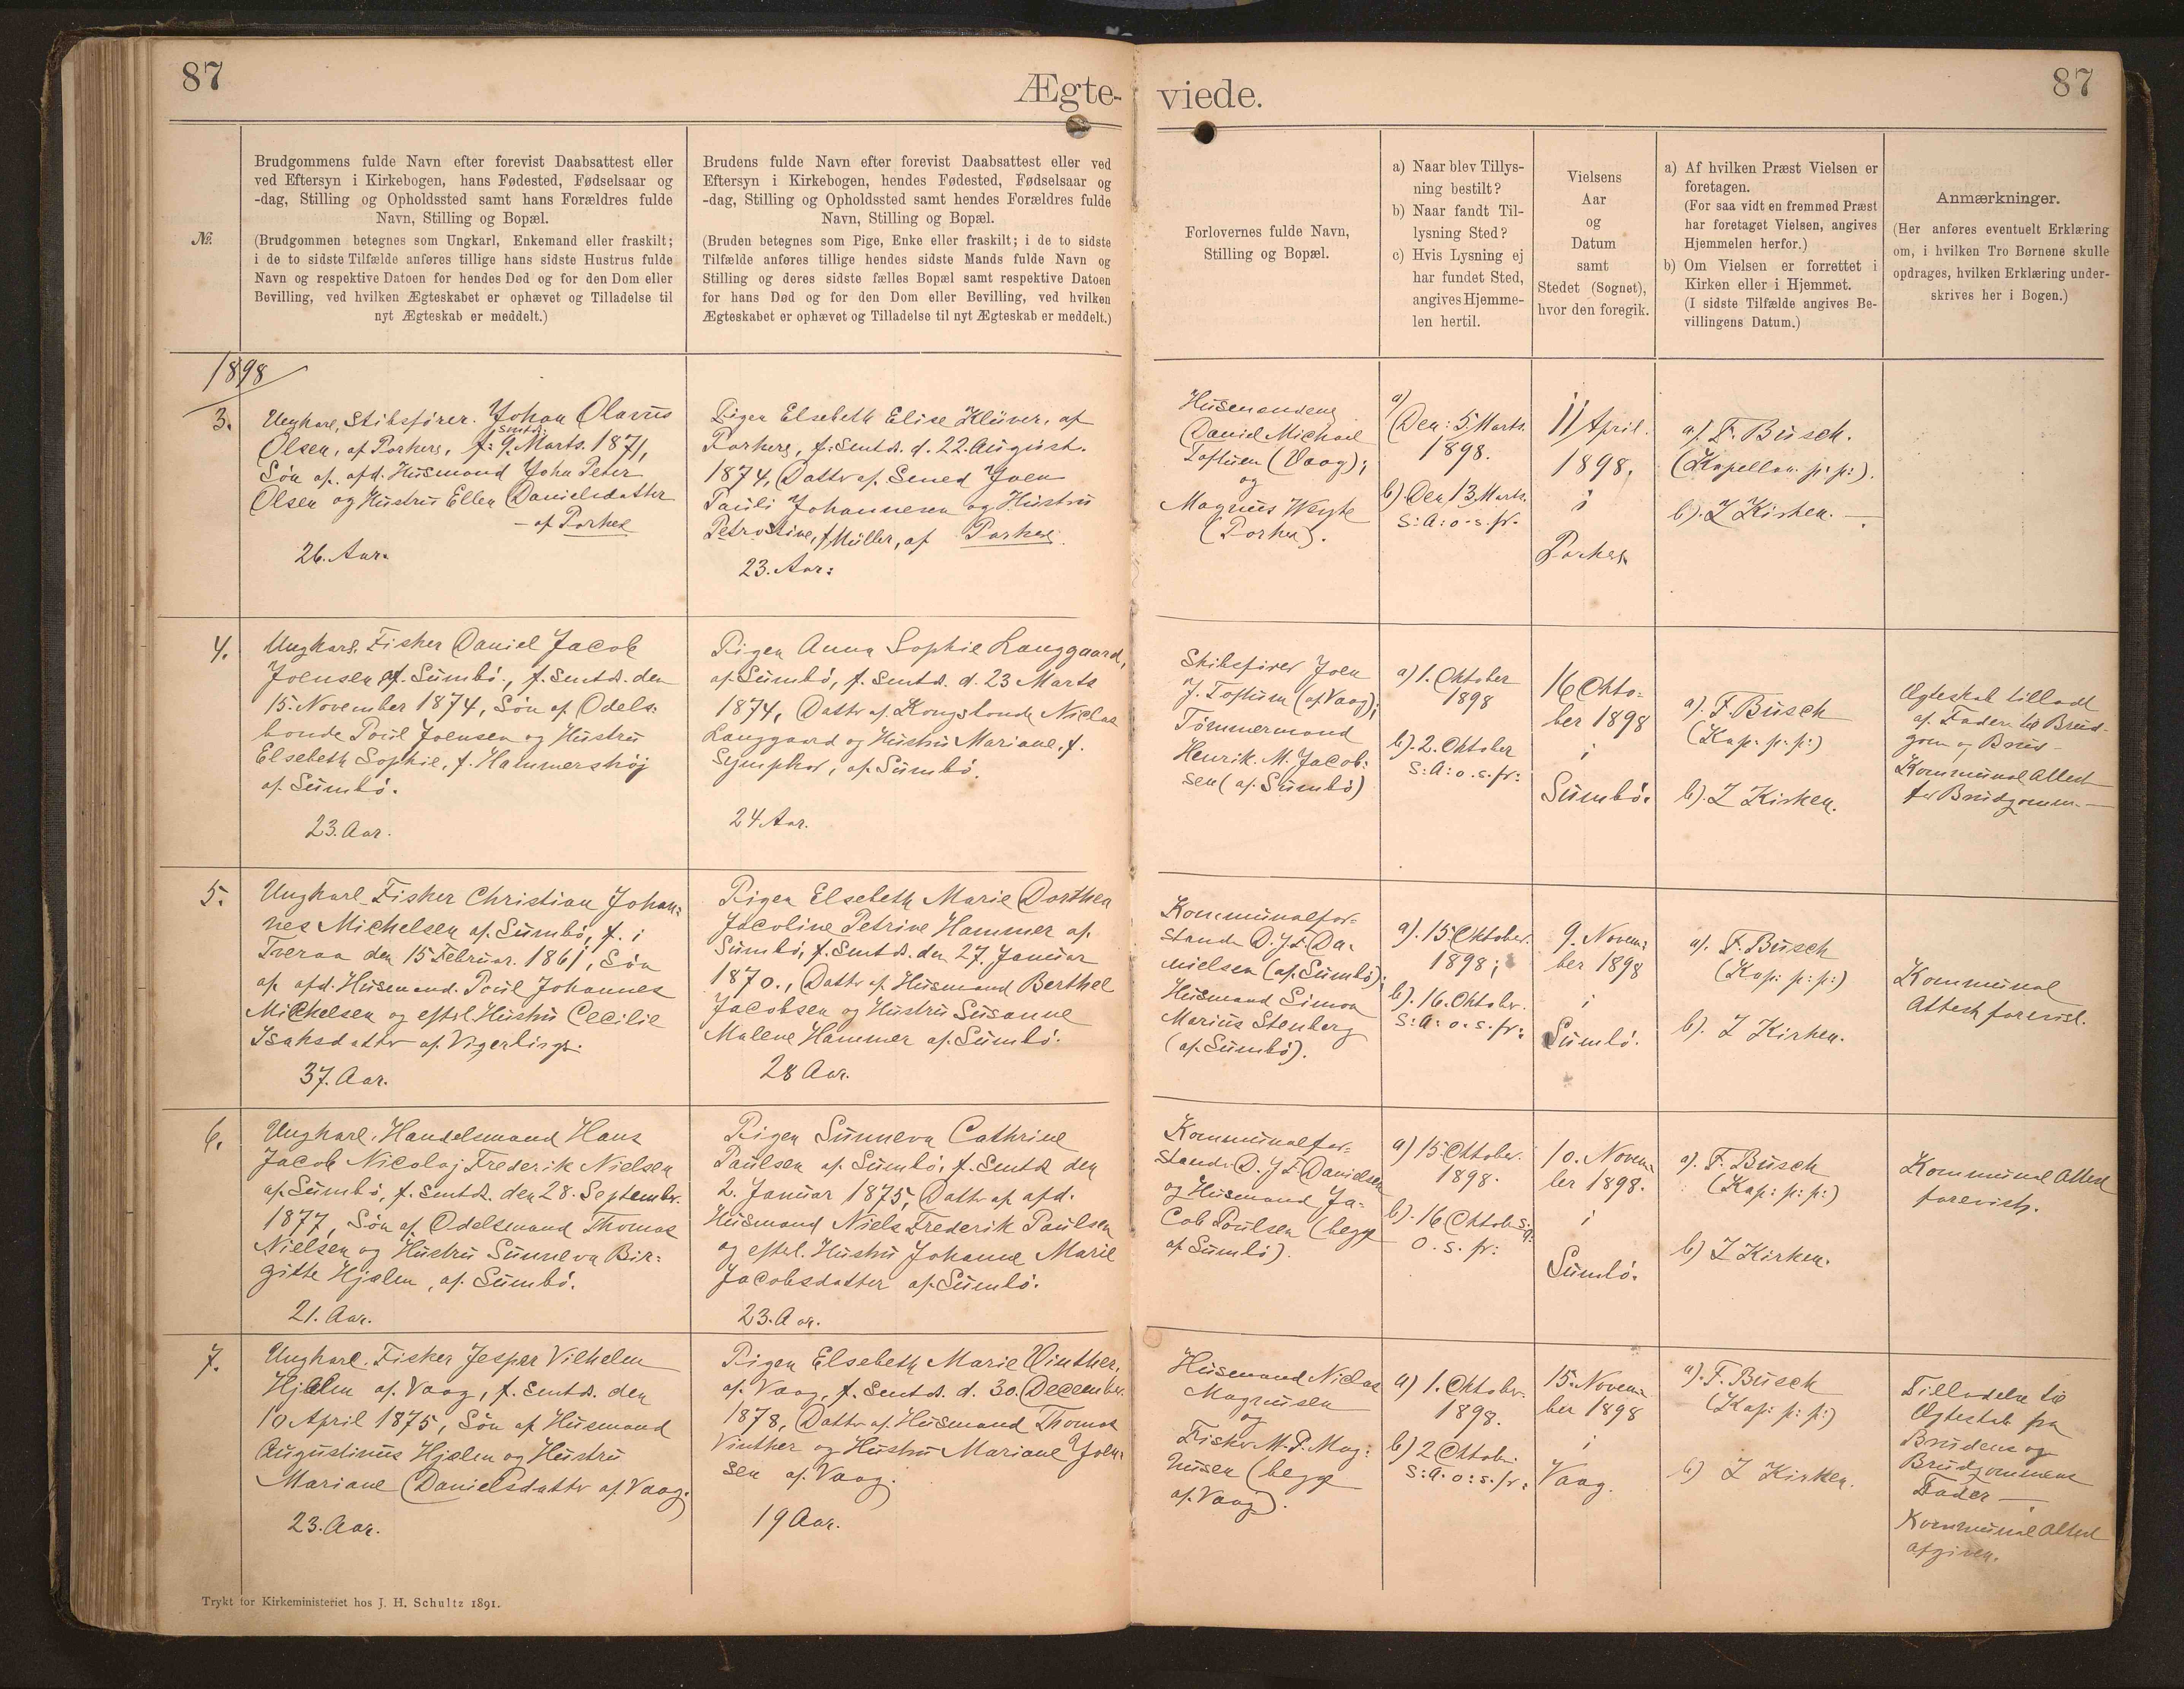 87
Ægte-
viede.
87
№.
Brudgommens fulde Navn efter forevist Daabsattest eller
ved Eftersyn i Kirkebogen, hans Fødested, Fødselsaar og
-dag, Stilling og Opholdssted samt hans Forældres fulde
Navn, Stilling og Bopæl.
(Brudgommen betegnes som Ungkarl, Enkemand eller fraskilt;
i de to sidste Tilfælde anføres tillige hans sidste Hustrus fulde
Navn og respektive Datoen for hendes Død og for den Dom eller
Bevilling, ved hvilken Ægteskabet er ophævet og Tilladelse til
nyt Ægteskab er meddelt.)
Brudens fulde Navn efter forevist Daabsattest eller ved
Eftersyn i Kirkebogen, hendes Fødested, Fødselsaar og
-dag, Stilling og Opholdssted samt hendes Forældres fulde
Navn, Stilling og Bopæl.
(Bruden betegnes som Pige, Enke eller fraskilt; i de to sidste
Tilfælde anføres tillige hendes sidste Mands fulde Navn og
Stilling og deres sidste fælles Bopæl samt respektive Datoen
for hans Død og for den Dom eller Bevilling, ved hvilken
Ægteskabet er ophævet og Tilladelse til nyt Ægteskab er meddelt.)
Forlovernes fulde Navn,
Stilling og Bopæl.
a) Naar blev Tillys-
ning bestilt?
b) Naar fandt Til-
lysning Sted?
c) Hvis Lysning ej
har fundet Sted,
angives Hjemme-
len hertil.
Vielsens
Aar
og
Datum
samt
Stedet (Sognet),
hvor den foregik.
a) Af hvilken Præst Vielsen er
foretagen.
(For saa vidt en fremmed Præst
har foretaget Vielsen, angives
Hjemmelen herfor.)
b) Om Vielsen er forrettet i
Kirken eller i Hjemmet.
(I sidste Tilfælde angives Be-
villingens Datum.)
Anmærkninger.
(Her anføres eventuelt Erklæring
om, i hvilken Tro Børnene skulle
opdrages, hvilken Erklæring under-
skrives her i Bogen.)
1898
3.
Ungkarl, Skibsfører. Johan Olavus
Olsen, af Porkere, f: smstds: 9. Marts. 1871,
Søn af. afd. Husmand John Peter
Olsen og Hustru Ellen Danielsdatter
– af Porkere
26. Aar.
Pigen Elsebeth Elise Klüver, af
Porkere, f. Smtds. d. 22. August.
1874, Datter af. Smed Joen
Pauli Johannesen og Hustru
Petrostine, f Müller, af Porkere.
23. Aar:
Husmændene
Daniel Michael
Toftum (Vaag);
og
Magnus Weyhe
(Porkere).
a)
Den: 5 Marts.
1898.
b) Den 13 Marts.
S: A: o. s. fr.
11 April.
1898,
i
Porkere.
a). F. Busch.
(Kapellan. p: p:).
b). I Kirken. –.
4.
Ungkarl. Fisker Daniel Jacob
Joensen af. Sumbø., f. Smtds. den
15. November 1874, Søn af Odels:
bonde Poul Joensen og Hustru
Elsebeth Sophie, f. Hammershøj
af. Sumbø.
23. Aar.
Pigen Anna Sophie Langgaard,
af Sumbø, f. Smtds. d. 23 Marts
1874, Dattr af. Kongsbonde Niclas
Langgaard og Hustru Mariane, f.
af Sumbø.
24 Aar.
Skibsfører Joen
J. Toftum (af Vaag);
Tømmermand
Henrik. M. Jacob:
sen (af. Sumbø)
a) 1. Oktober
1898
b). 2. Oktober
S: A: o. s. fr:
16 Okto:
ber 1898
i
Sumbø.
a). F. Busch
(Kap: p: p:)
b). I Kirken.
Ægteskab tilladt
af. Faderen til Brud-
gom og Brud –
Kommunal Attest
for Brudgommen. –
5.
Ungkarl Fisker Christian Johan:
nes Michelsen af. Sumbø, f. i
Tveraa den 15 Februar. 1861, Søn
af. afd. Husmand. Poul Johannes
Michelsen og efterl. Hustru Cecilie
Isaksdatter af. Vigerbirge.
37. Aar.
Pigen Elsebeth Marie Dorthea
Jacoline Petrine Hammer af.
Sumbø, f. Smtds. den 27. Januar
1870., Dattr af. Husmand Berthel
Jacobsen og Hustru Susanne
Malene Hammer af. Sumbø.
28 Aar.
Kommunalfor:
stander D. J. F. Da:
nielsen (af. Sumbø);
Husmand Simon
Marius Stenberg
(af. Sumbø).
a). 15 Oktober.
1898;
b). 16. Oktober.
S: A: o. s. fr:
9. Novem:
ber 1898
i
Sumbø.
a). F. Busch
(Kap: p: p:)
b). I Kirken.
Kommunal
Attest forevist.
6.
Ungkarl. Handelsmand Hans
Jacob Nicolaj Frederik Nielsen
af. Sumbø, f. Smtds. den 28. September.
1877, Søn af Odelsmand Thomas
Nielsen og Hustru Sunneva Bir:
gitte Hjalen, af. Sumbø.
21. Aar.
Pigen Sunneva Cathrine
Paulsen af. Sumbø, f. Smtds den
2. Januar 1875, Dattr af. afd.
Husmand Niels Frederik Paulsen
og efterl. Hustru Johanne Marie
Jacobsdatter af. Sumbø.
23. Aar.
Kommunalfor:
stander D. J. F. Danielsen
og Husmand Ja-
cob Poulsen (begge
af Sumbø).
a) 15 Oktober.
1898.
b). 16 Oktob. S: A:
o. s. fr:
10. Novem:
ber 1898.
i
Sumbø.
a). F. Busch
(Kap: p: p:)
b) I Kirken.
Kommunal Attest
forevist.
7.
Ungkarl. Fisker Jesper Vilhelm
Hjalen af. Vaag, f. Smtds. den
10 April 1875, Søn af Husmand
Augustinus Hjalen og Hustru
Mariane Danielsdatter af. Vaag.
23. Aar.
Pigen Elsebeth Marie Vinther,
af. Vaag, f. Smtds. d. 30. December.
1878, Dattr af. Husmand Thomas
Vinther og Hustru Mariane Joen:
sen af. Vaag.
19 Aar.
Husmand Niclas
Magnusen
og
Fisker M. P. Mag:
nusen (begge
af. Vaag).
a) 1. Oktober.
1898.
b) 2 Oktober
S: A. o: s. fr:
15. Novem:
ber 1898
i
Vaag.
a). F. Busch
(Kap: p: p:)
b) I Kirken.
Tilladelse til
Ægteskab fra
Brudens og
Brudgommens
Fader –.
Kommunal Attest
afgiven.
Trykt for Kirkeministeriet hos J. H. Schultz 1891.